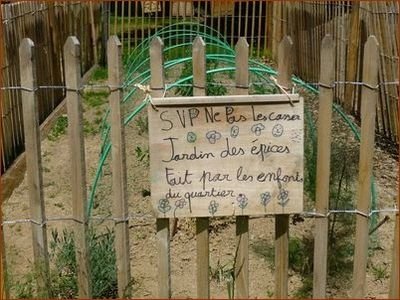 S.V.P Ne Pas Les Casser
Jardin des épices
fait par les enfants
du quartier